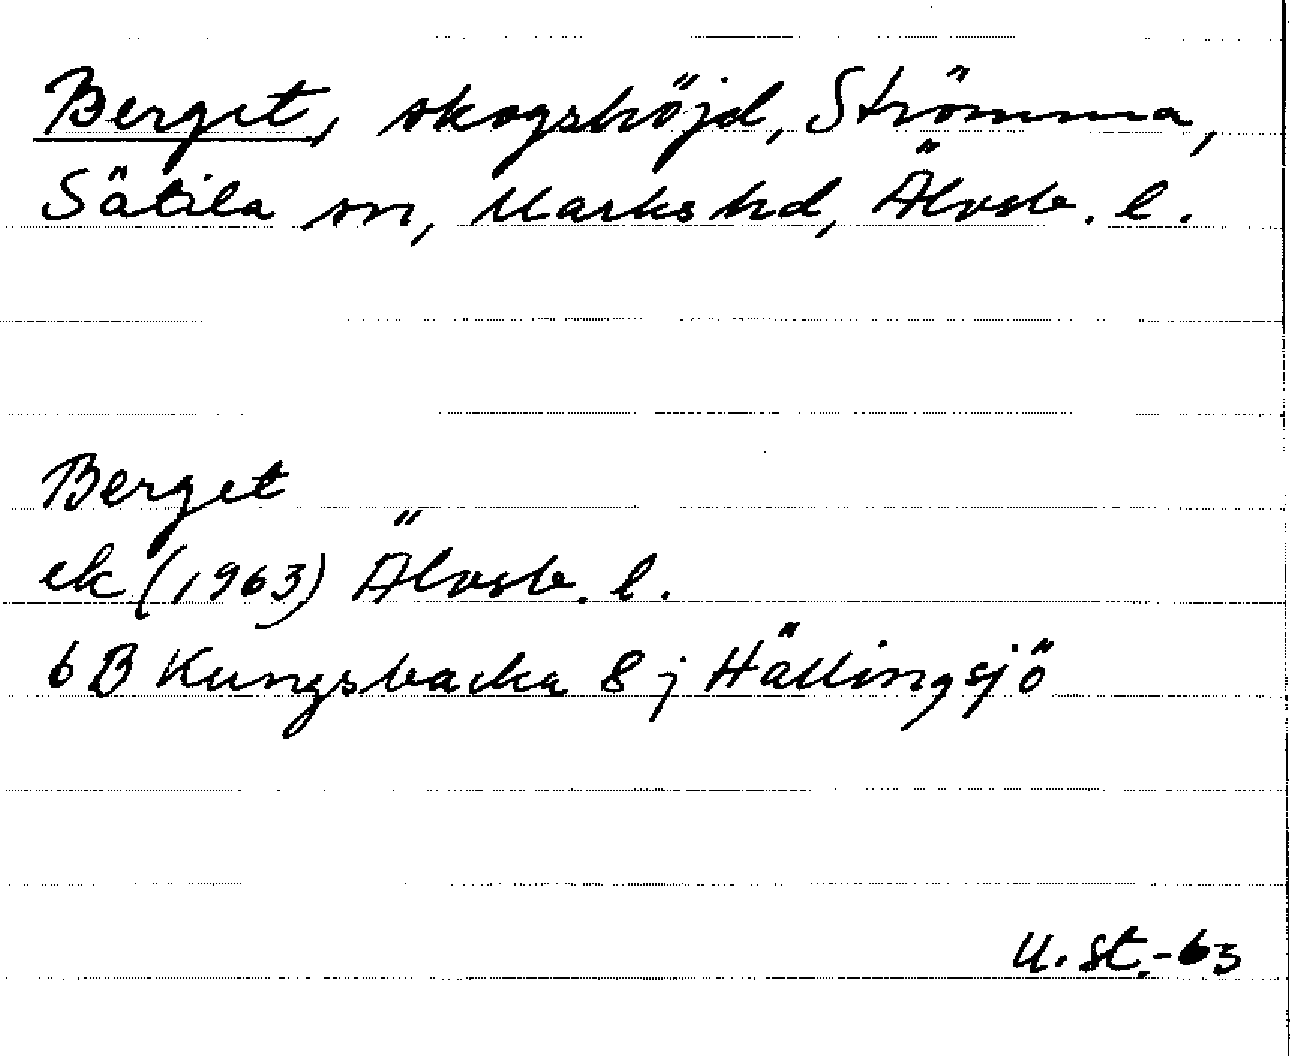 Berget, skogshöjd, Strömma,
Sätila sn, Marks hd, Älvsb. l.
Berget
ek (1963) Älvsb. l.
6 B Kungsbacka 8 j Hällingsjö
U. St.-63